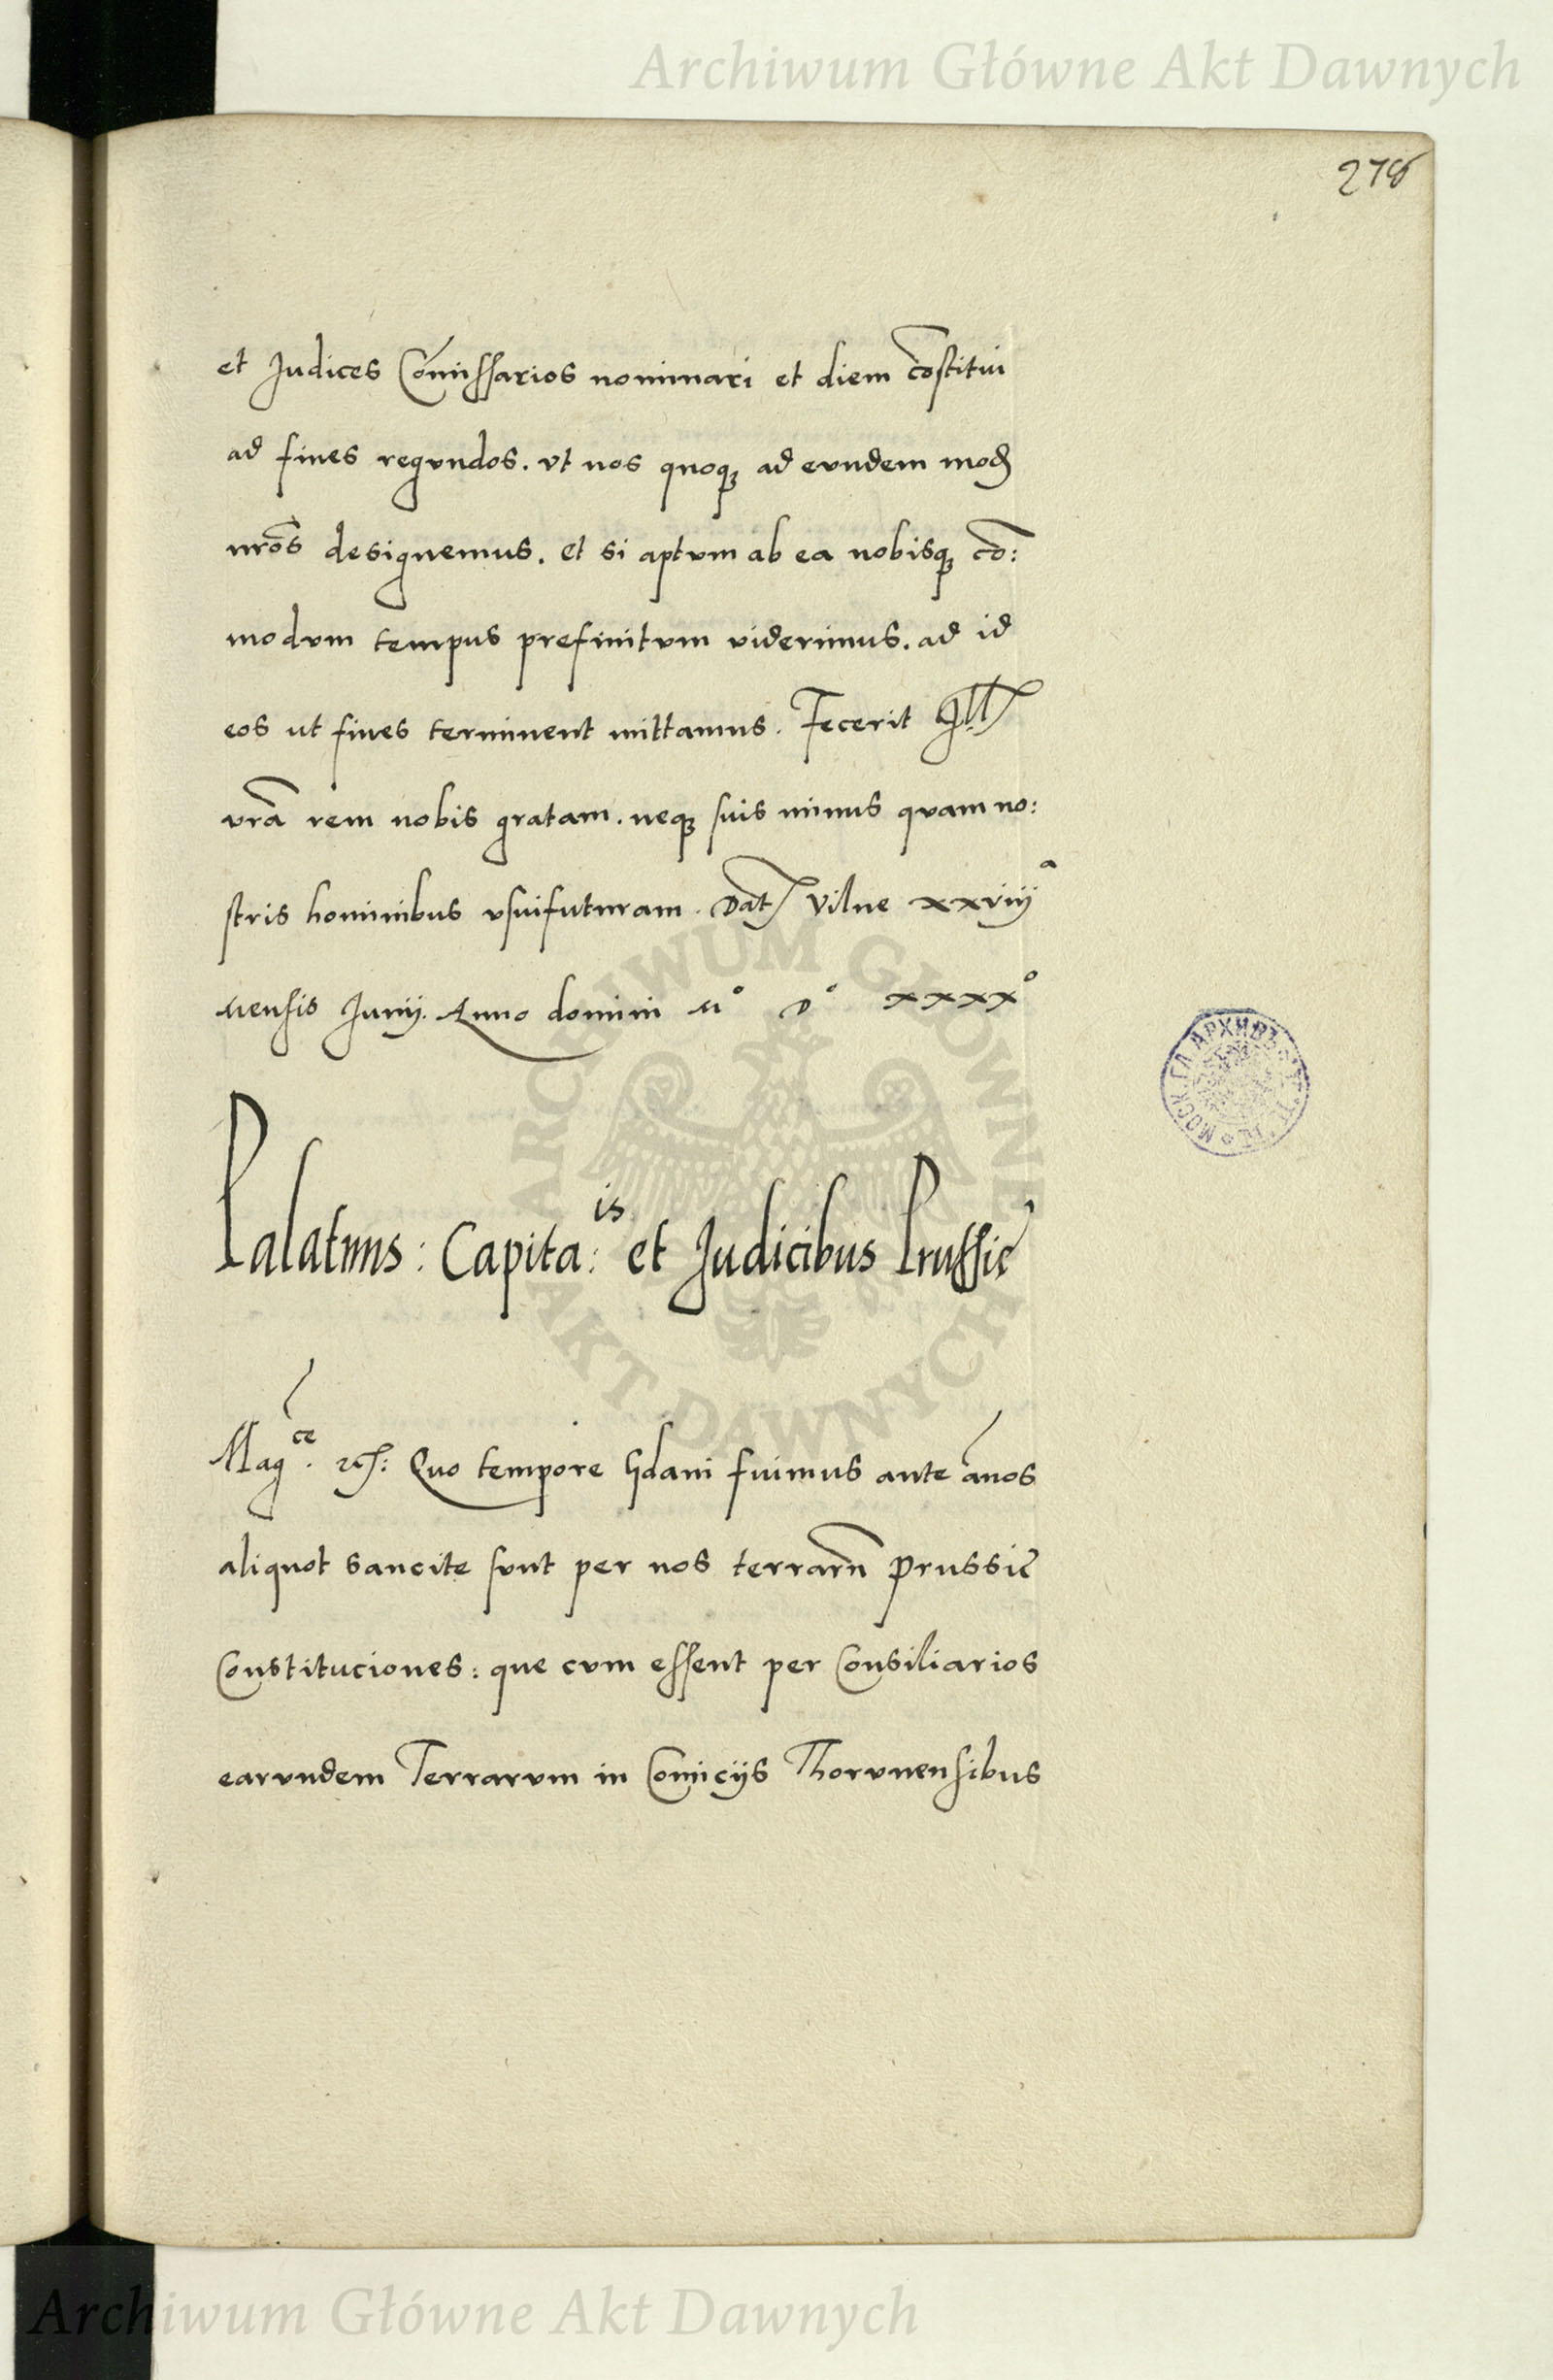 Archiwum Główne Akt Dawnych
278
et Judices Com̄issarios nominari et diem co̅stitui
ad fines regundos. vt nos quoqꝫ ad eundem mod
nro̅s designemus. et si aptum ab ea nobisqꝫ co̅:
modum tempus prefinitum viderimus. ad id
eos ut fines terminent mittamus. Fecerit Ill
vra̅ rem nobis gratam. neqꝫ suis minus quam no:
stris hominibus vsuifuturam. Dat Vilne xxviijª
mensis Junij. Anno domini M° D° xxxx°
Palatinis: Capita:is et Judicibus Prussie
Mag.ce etc: Quo tempore Gdani fuimus ante an̅os
aliquot sancite sunt per nos terraru̅ Prussie
Constituciones: que cum essent per Consiliarios
earundem Terrarum in Comicijs Thorunensibus
ARCHIWUM GŁÓWNE AKT DAWNYCH
Archiwum Główne Akt Dawnych